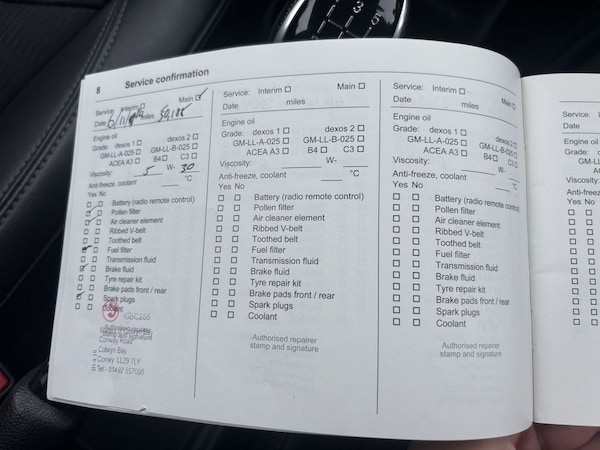 8 Service confirmation
Service: Interim ☐ Main ☑
Date 6/11/ miles 50,188
Engine oil
Grade: dexos 1 ☐ dexos 2 ☐
GM-LL-A-025 ☐ GM-LL-B-025 ☐
ACEA A3 ☐ B4 ☐ C3 ☐
Viscosity: 5 W- 30
Anti-freeze, coolant °C
Yes No
Battery (radio remote control)
Pollen filter
Air cleaner element
Ribbed V-belt
Toothed belt
Fuel filter
Transmission fluid
Brake fluid
Tyre repair kit
Brake pads front / rear
Spark plugs
Coolant
Authorised repairer
stamp and signature
Conway Road
Colwyn Bay
Conwy LL29 7LY
Tel - 01492 557000
Service: Interim ☐ Main ☐
Date miles
Engine oil
Grade: dexos 1 ☐ dexos 2 ☐
GM-LL-A-025 ☐ GM-LL-B-025 ☐
ACEA A3 ☐ B4 ☐ C3 ☐
Viscosity: W-
Anti-freeze, coolant °C
Yes No
Battery (radio remote control)
Pollen filter
Air cleaner element
Ribbed V-belt
Toothed belt
Fuel filter
Transmission fluid
Brake fluid
Tyre repair kit
Brake pads front / rear
Spark plugs
Coolant
Authorised repairer
stamp and signature
Service: Interim ☐ Main ☐
Date miles
Engine oil
Grade: dexos 1 ☐ dexos 2 ☐
GM-LL-A-025 ☐ GM-LL-B-025 ☐
ACEA A3 ☐ B4 ☐ C3 ☐
Viscosity: W-
Anti-freeze, coolant °C
Yes No
Battery (radio remote control)
Pollen filter
Air cleaner element
Ribbed V-belt
Toothed belt
Fuel filter
Transmission fluid
Brake fluid
Tyre repair kit
Brake pads front / rear
Spark plugs
Coolant
Authorised repairer
stamp and signature
Service:
Date
Engine oil
Grade:
Viscosity:
Anti-freeze
Yes No
3
5